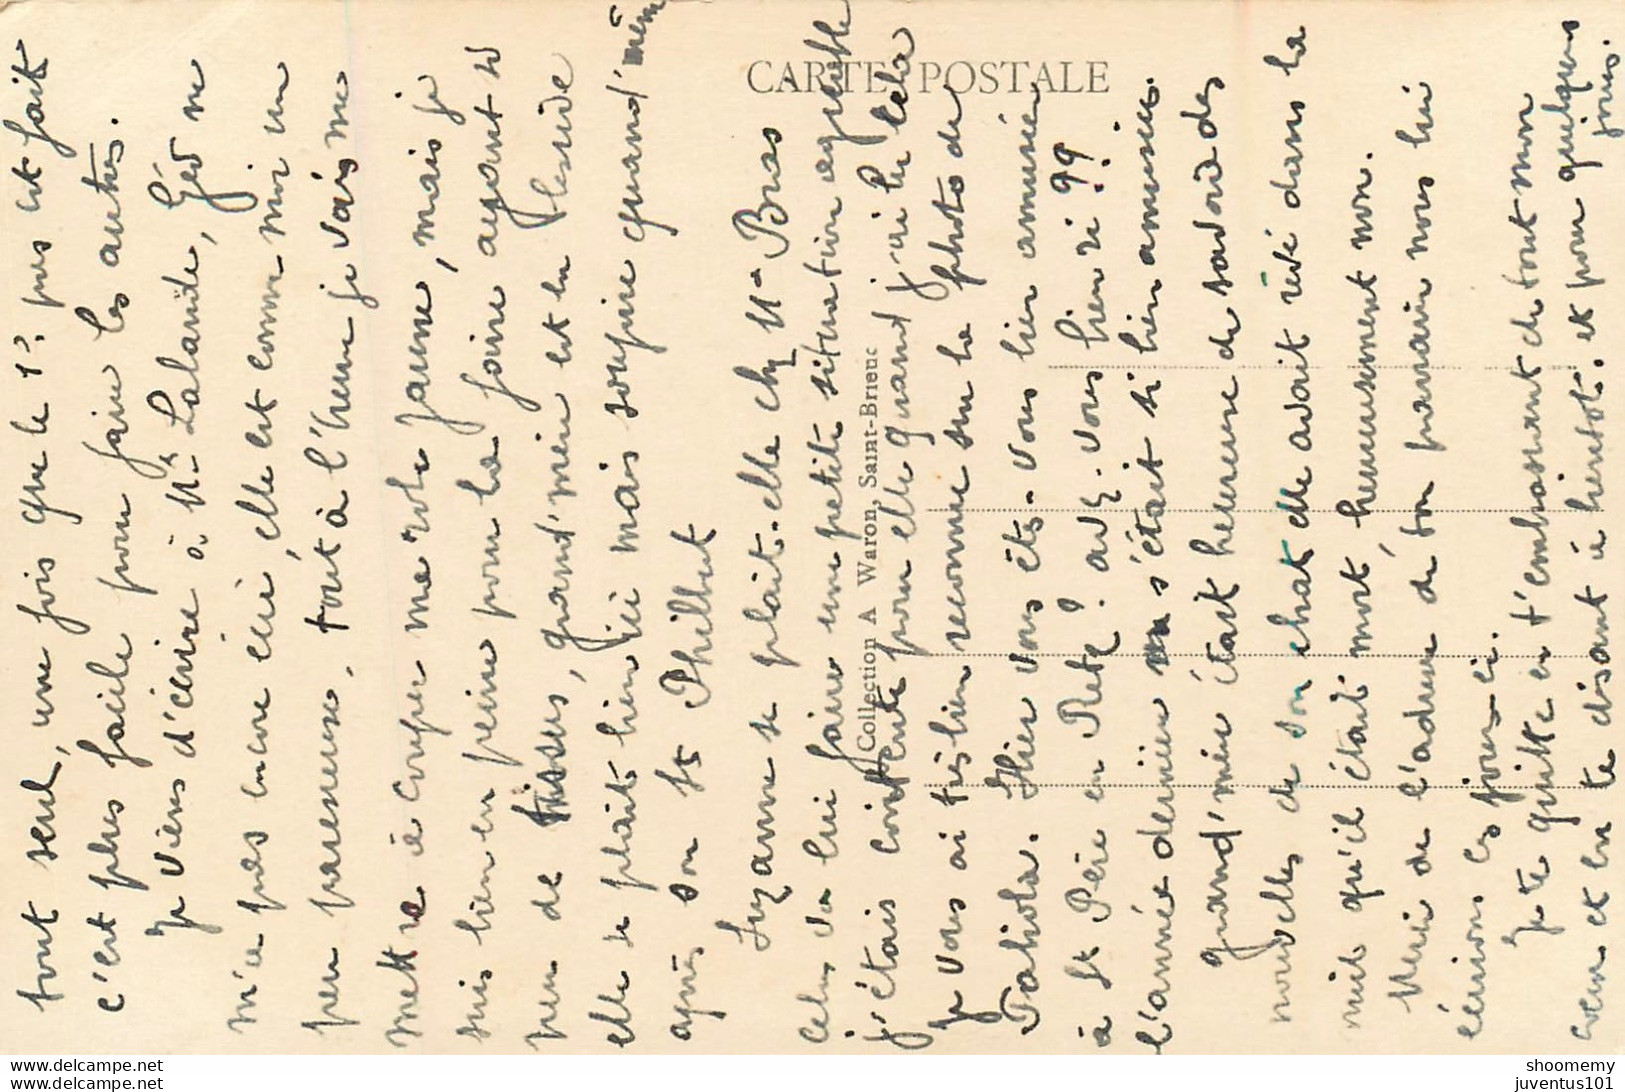 CARTE POSTALE
Collection A Waron, Saint-Brieuc
tout seul, une fois que le 1er pas est fait
c'est plus facile pour faire les autres.
Je viens d'écrire à Me Lalande, Géo ne
m'a pas encore écrit, elle est comme moi un
peu paresseuse, tout à l'heure je vais me
mettre à couper me robe jaune, mais je
suis bien en peine pour la faire ayant si
peu de tissus, grand'mère est en lessive
elle se plait bien ici mais soupire quand même
après son St Philbert
Suzanne se plait-elle chez Me Bras
cela va lui faire une petite situation agréable
j'étais contente pour elle quand j'ai lu cela
je vous ai très bien reconnue sur la photo de
Hier vous êtes-vous bien amusée
à St Père en Retz? avez-vous bien ri??
l'année dernière on s'était si bien amusées.
grand'mère était heureuse de savoir des
nouvelles de son chat elle avait rêvé dans la
nuit qu'il était mort, heureusement non.
Merci de l'adresse de ton parrain nous lui
écrirons ces jours-ci.
Je te quitte en t'embrassant de tout mon
cœur et en te disant à bientôt. et pour quelques
jours.
shoomemy
juventus101